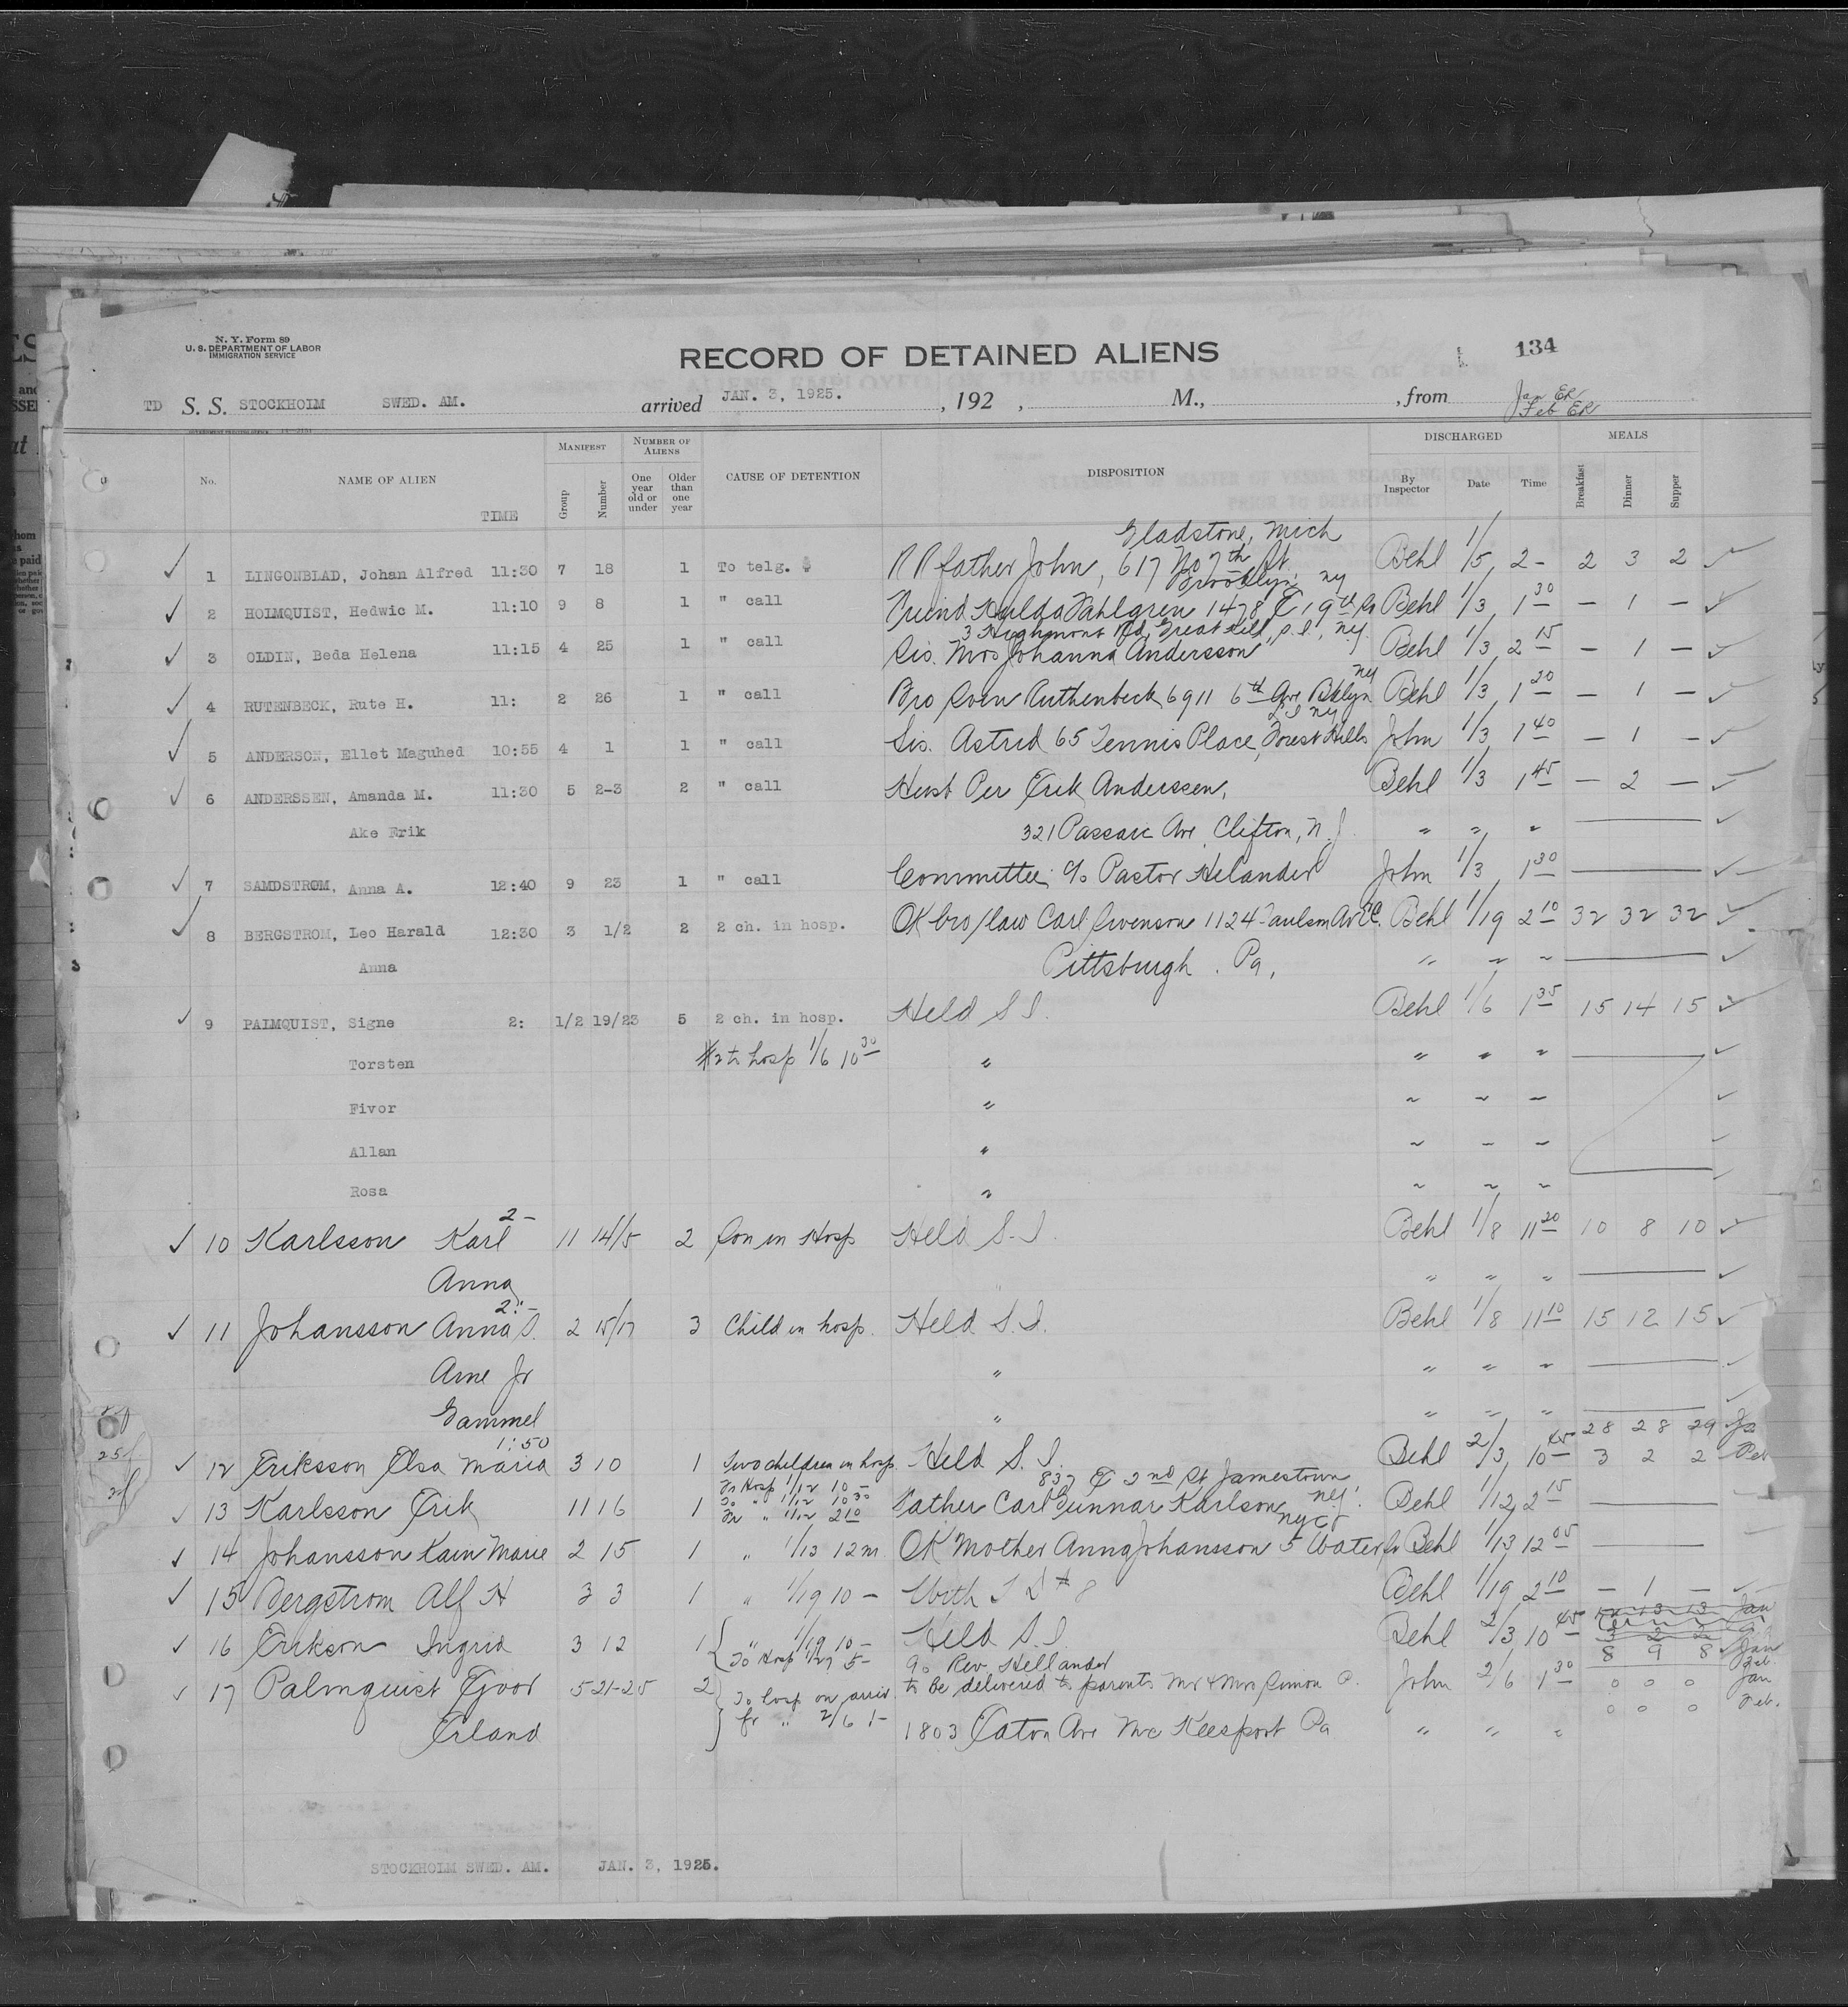 N. Y. Form 89
U. S. DEPARTMENT OF LABOR
IMMIGRATION SERVICE
RECORD OF DETAINED ALIENS 134
TD S. S. STOCKHOLM SWED. AM. arrived JAN. 3, 1925. , 192 , M., , from Jan ER
Feb ER
No. NAME OF ALIEN TIME MANIFEST Group Number NUMBER OF ALIENS One year old or under Older than one year CAUSE OF DETENTION DISPOSITION DISCHARGED By Inspector Date Time MEALS Breakfast Dinner Supper
Gladstone, Mich
1 LINGONBLAD, Johan Alfred 11:30 7 18 1 To telg. RR father John, 617 No 7th St. Behl 1/5 2- 2 3 2
Brooklyn, ny
2 HOLMQUIST, Hedwic M. 11:10 9 8 1 " call Friend Hulda Fahlgren 1478 E 19th St Behl 1/3 1 30 - 1 -
3 Highmont Rd, Great Kill, S.I., n.y.
3 OLDIN, Beda Helena 11:15 4 25 1 " call Sis. Mrs Johanna Andersson Behl 1/3 2 15 - 1 -
ny
4 RUTENBECK, Rute H. 11: 2 26 1 " call Bro Sven Ruthenbeck 6911 6th Ave Bklyn Behl 1/3 1 20 - 1 -
L I ny
5 ANDERSON, Ellet Maguhed 10:55 4 1 1 " call Sis. Astrid 65 Tennis Place, Forest Hills John 1/3 1 40 - 1 -
6 ANDERSSEN, Amanda M. 11:30 5 2-3 2 " call Husb Per Erik Anderssen, Behl 1/3 1 45 - 2 -
Ake Erik 321 Passaic Ave, Clifton, N.J. " " "
7 SAMDSTROM, Anna A. 12:40 9 23 1 " call Committee c/o Pastor Helander John 1/3 1 30
8 BERGSTROM, Leo Harald 12:30 3 1/2 2 2 ch. in hosp. OK bro/law Carl Swenson 1124 Paulson Av EE. Behl 1/19 2 10 32 32 32
Anna Pittsburgh. Pa, " " "
9 PALMQUIST, Signe 2: 1/2 19/23 5 2 ch. in hosp. Held S I. Behl 1/6 1 35 15 14 15
Torsten #2 to hosp 1/6 10 30 " " " "
Fivor " " " "
Allan " " " "
Rosa " " " "
2-
10 Karlsson Karl 11 14/5 2 Son in Hosp Held S.I. Behl 1/8 11 20 10 8 10
Anna " " "
2:-
11 Johansson Anna S. 2 15/17 3 Child in hosp. Held S.I. Behl 1/8 11 10 15 12 15
Arne Jr " " " "
Gammel " " " "
1:50 28 28 29 Ja
12 Eriksson Elsa Maria 3 10 1 Two children in hosp. Held S.I. Behl 2/3 10 45 3 2 2 Feb
Fr Hosp 1/12 10 - 837 E 2nd St Jamestown
To " 1/12 10 30 n.y.
13 Karlsson Erik 11 16 1 Fr " 1/12 2 10 Father Carl Gunnar Karlson Behl 1/12 2 15
nyc
14 Johansson Karin Marie 2 15 1 " 1/13 12m OK Mother Anna Johansson 5 Water St Behl 1/13 12 05
15 Bergstrom Alf H 3 3 1 " 1/19 10 - With T D #8 Behl 1/19 2 10 - 1 -
16 Erikson Ingrid 3 12 1 " 1/19 10 - Held S.I. Behl 2/3 10 45 13 13 Jan
To Hosp 1/27 5 - c/o Rev Hellander 8 9 8 Jan
Feb.
17 Palmquist Ejvor 5 21-25 2 To hosp on arriv. to be delivered to parents Mr & Mrs Simon P. John 2/6 1 30 0 0 0 Jan
Erland fr " 2/6 1- 1803 Eaton Ave Mc Keesport Pa " " " 0 0 0 Feb.
STOCKHOLM SWED. AM. JAN. 3, 1925.